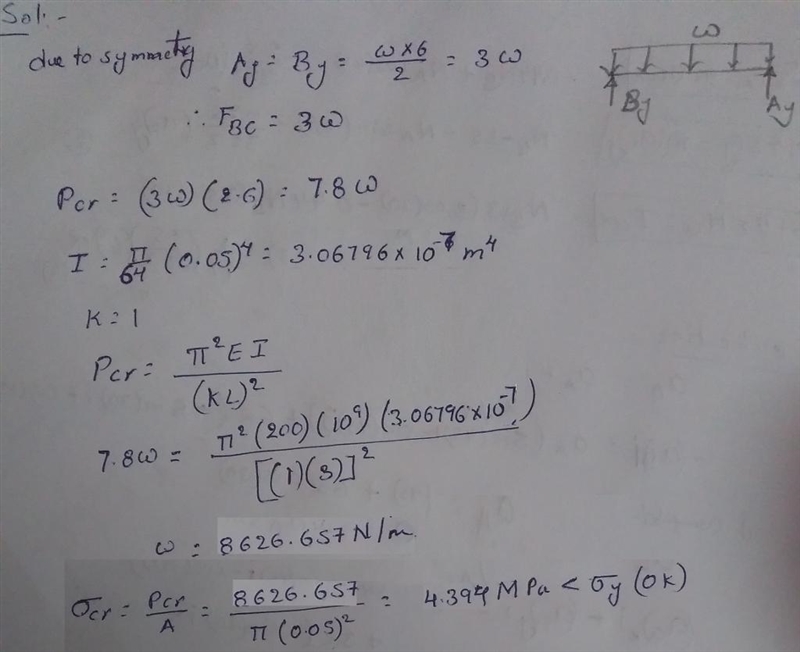 Sol:-
due to symmetry Ay = By = ω×6/2 = 3ω
∴ FBC = 3ω
Pcr = (3ω)(2.6) = 7.8ω
I = π/64 (0.05)⁴ = 3.06796×10⁻⁷ m⁴
K = 1
Pcr = π²EI/(KL)²
7.8ω = π²(200)(10⁹)(3.06796×10⁻⁷)/[(1)(3)]²
ω = 8626.657 N/m.
σcr = Pcr/A = 8626.657/π(0.05)² = 4.394 MPa < σy (OK)
ω
By
Ay